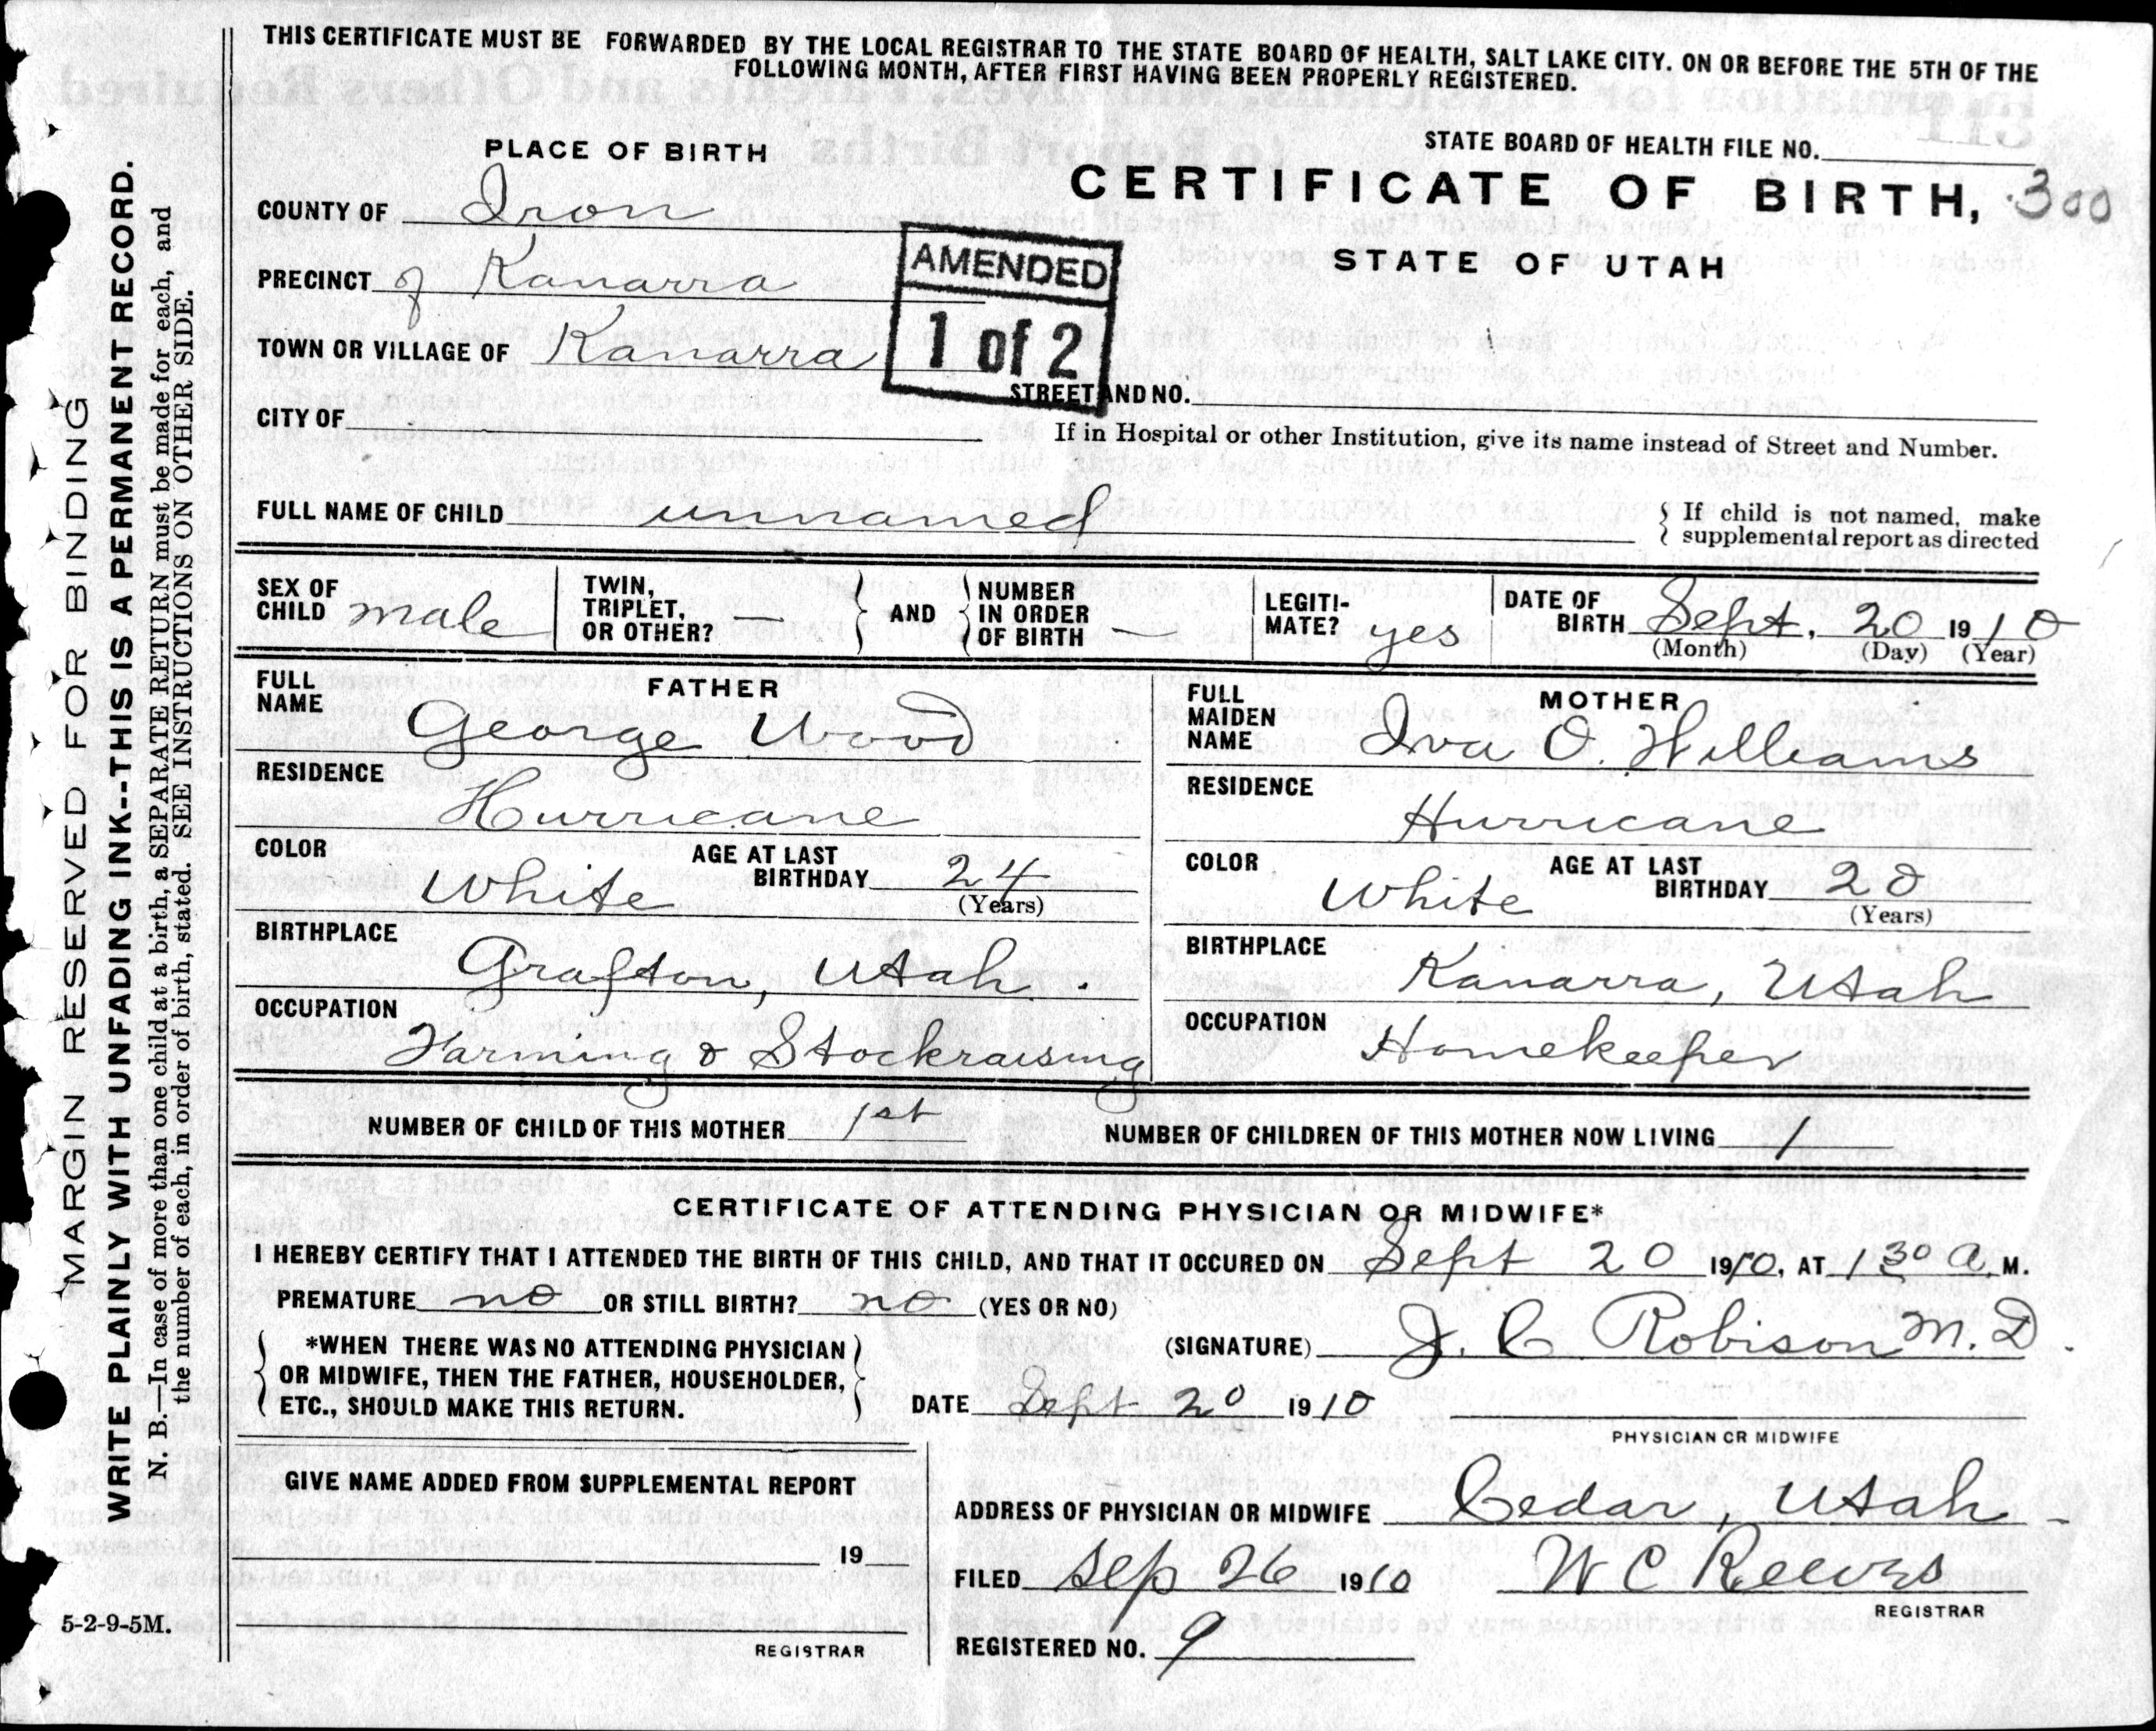 THIS CERTIFICATE MUST BE FORWARDED BY THE LOCAL REGISTRAR TO THE STATE BOARD OF HEALTH, SALT LAKE CITY. ON OR BEFORE THE 5TH OF THE
FOLLOWING MONTH, AFTER FIRST HAVING BEEN PROPERLY REGISTERED.
MARGIN RESERVED FOR BINDING
WRITE PLAINLY WITH UNFADING INK--THIS IS A PERMANENT RECORD.
N. B.—In case of more than one child at a birth, a SEPARATE RETURN must be made for each, and
the number of each, in order of birth, stated. SEE INSTRUCTIONS ON OTHER SIDE.
PLACE OF BIRTH
STATE BOARD OF HEALTH FILE NO.
CERTIFICATE OF BIRTH, 300
STATE OF UTAH
COUNTY OF Iron
PRECINCT of Kanarra
TOWN OR VILLAGE OF Kanarra
AMENDED
1 of 2
STREET AND NO.
CITY OF
If in Hospital or other Institution, give its name instead of Street and Number.
FULL NAME OF CHILD unnamed
If child is not named, make
supplemental report as directed
SEX OF
CHILD male
TWIN,
TRIPLET,
OR OTHER? —
AND
NUMBER
IN ORDER
OF BIRTH —
LEGITI-
MATE? yes
DATE OF
BIRTH Sept. 20 1910
(Month) (Day) (Year)
FATHER
FULL
NAME George Wood
RESIDENCE
Hurricane
COLOR
White
AGE AT LAST
BIRTHDAY 24
(Years)
BIRTHPLACE
Grafton, Utah.
OCCUPATION
Farming & Stockraising
MOTHER
FULL
MAIDEN
NAME Iva O. Williams
RESIDENCE
Hurricane
COLOR
White
AGE AT LAST
BIRTHDAY 20
(Years)
BIRTHPLACE
Kanarra, Utah
OCCUPATION
Homekeeper
NUMBER OF CHILD OF THIS MOTHER 1st
NUMBER OF CHILDREN OF THIS MOTHER NOW LIVING 1
CERTIFICATE OF ATTENDING PHYSICIAN OR MIDWIFE*
I HEREBY CERTIFY THAT I ATTENDED THE BIRTH OF THIS CHILD, AND THAT IT OCCURED ON Sept 20 1910, AT 1 30 A. M.
PREMATURE no OR STILL BIRTH? no (YES OR NO)
*WHEN THERE WAS NO ATTENDING PHYSICIAN
OR MIDWIFE, THEN THE FATHER, HOUSEHOLDER,
ETC., SHOULD MAKE THIS RETURN.
(SIGNATURE) J. C. Robison M. D.
DATE Sept 20 1910
PHYSICIAN OR MIDWIFE
GIVE NAME ADDED FROM SUPPLEMENTAL REPORT
19
REGISTRAR
ADDRESS OF PHYSICIAN OR MIDWIFE Cedar, Utah
FILED Sep 26 1910 W C Reeves
REGISTRAR
REGISTERED NO. 9
5-2-9-5M.